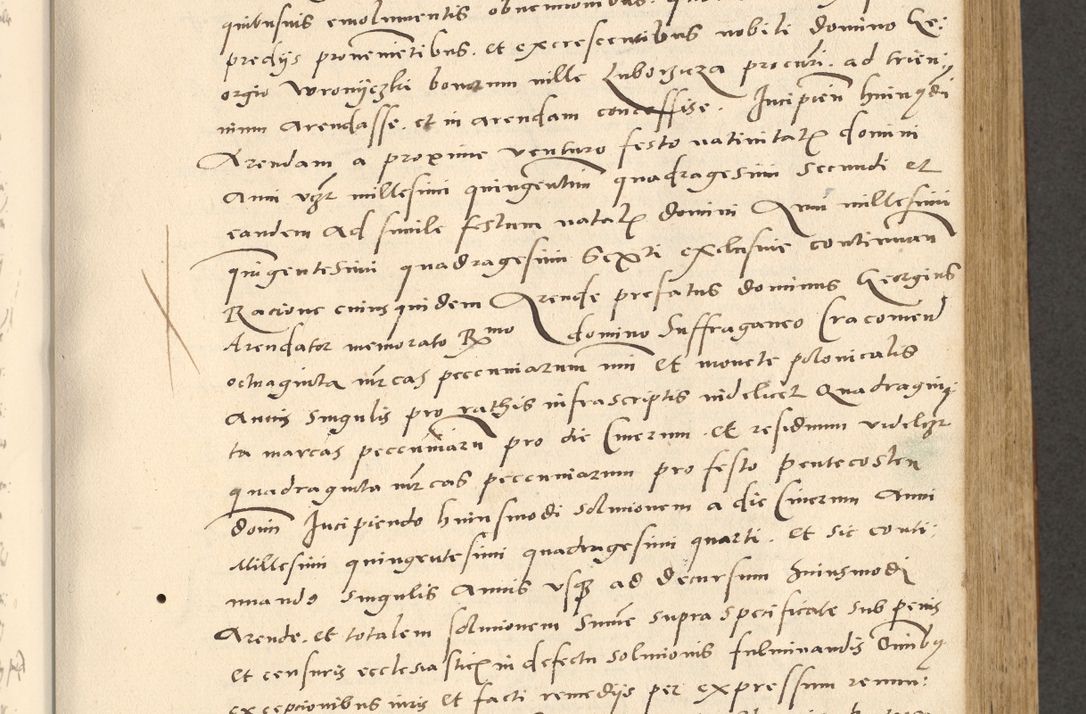 quibusuis emolumentis obuencionibus
predijs prouenietibus. et excrescentibus nobili domino Ge:
orgio Wronyczki bonarum ville Luborzicza procuri. ad trien:
nium Arendasse. et in arendam concessisse. Incipien huiusmodi
Arendam a proxime venturo festo natiuitatis domini
Anni vzr millesimi quingentim quadragesimi secundi et
eandem ad simile festum natatis domini Anni millesimi
quigentesimi quadragesimi Sexti exclusiue continuan
Racione cuius quidem Arende prefatus dominus Georgius
Arendator memorato Rmo domino Suffraganeo Cracouien
octuaginta mrcas pecuniarum nui et monete polonicalis
Annis singulis pro rathis infrascriptis videlicet Quadragin:
ta marcas pecuniaru pro die Cinerum. et residuum videlicet
quadraginta mrcas pecuniarum pro festo pentecosten
domi Incipiendo huiusmodi solucionem a die Cinerum Anni
Millesimi quingentesimi quadragesimi quarti. Et sic conti:
nuando singulis Annis vsque ad decursum huiusmodi
Arende. et totalem solucionem Summe supra specificate sub penis
et censuris ecclesiasticis in defectu solucionis fulminandis Omnibus
excepcionibus iuris et facti remedijs per expressum renun: